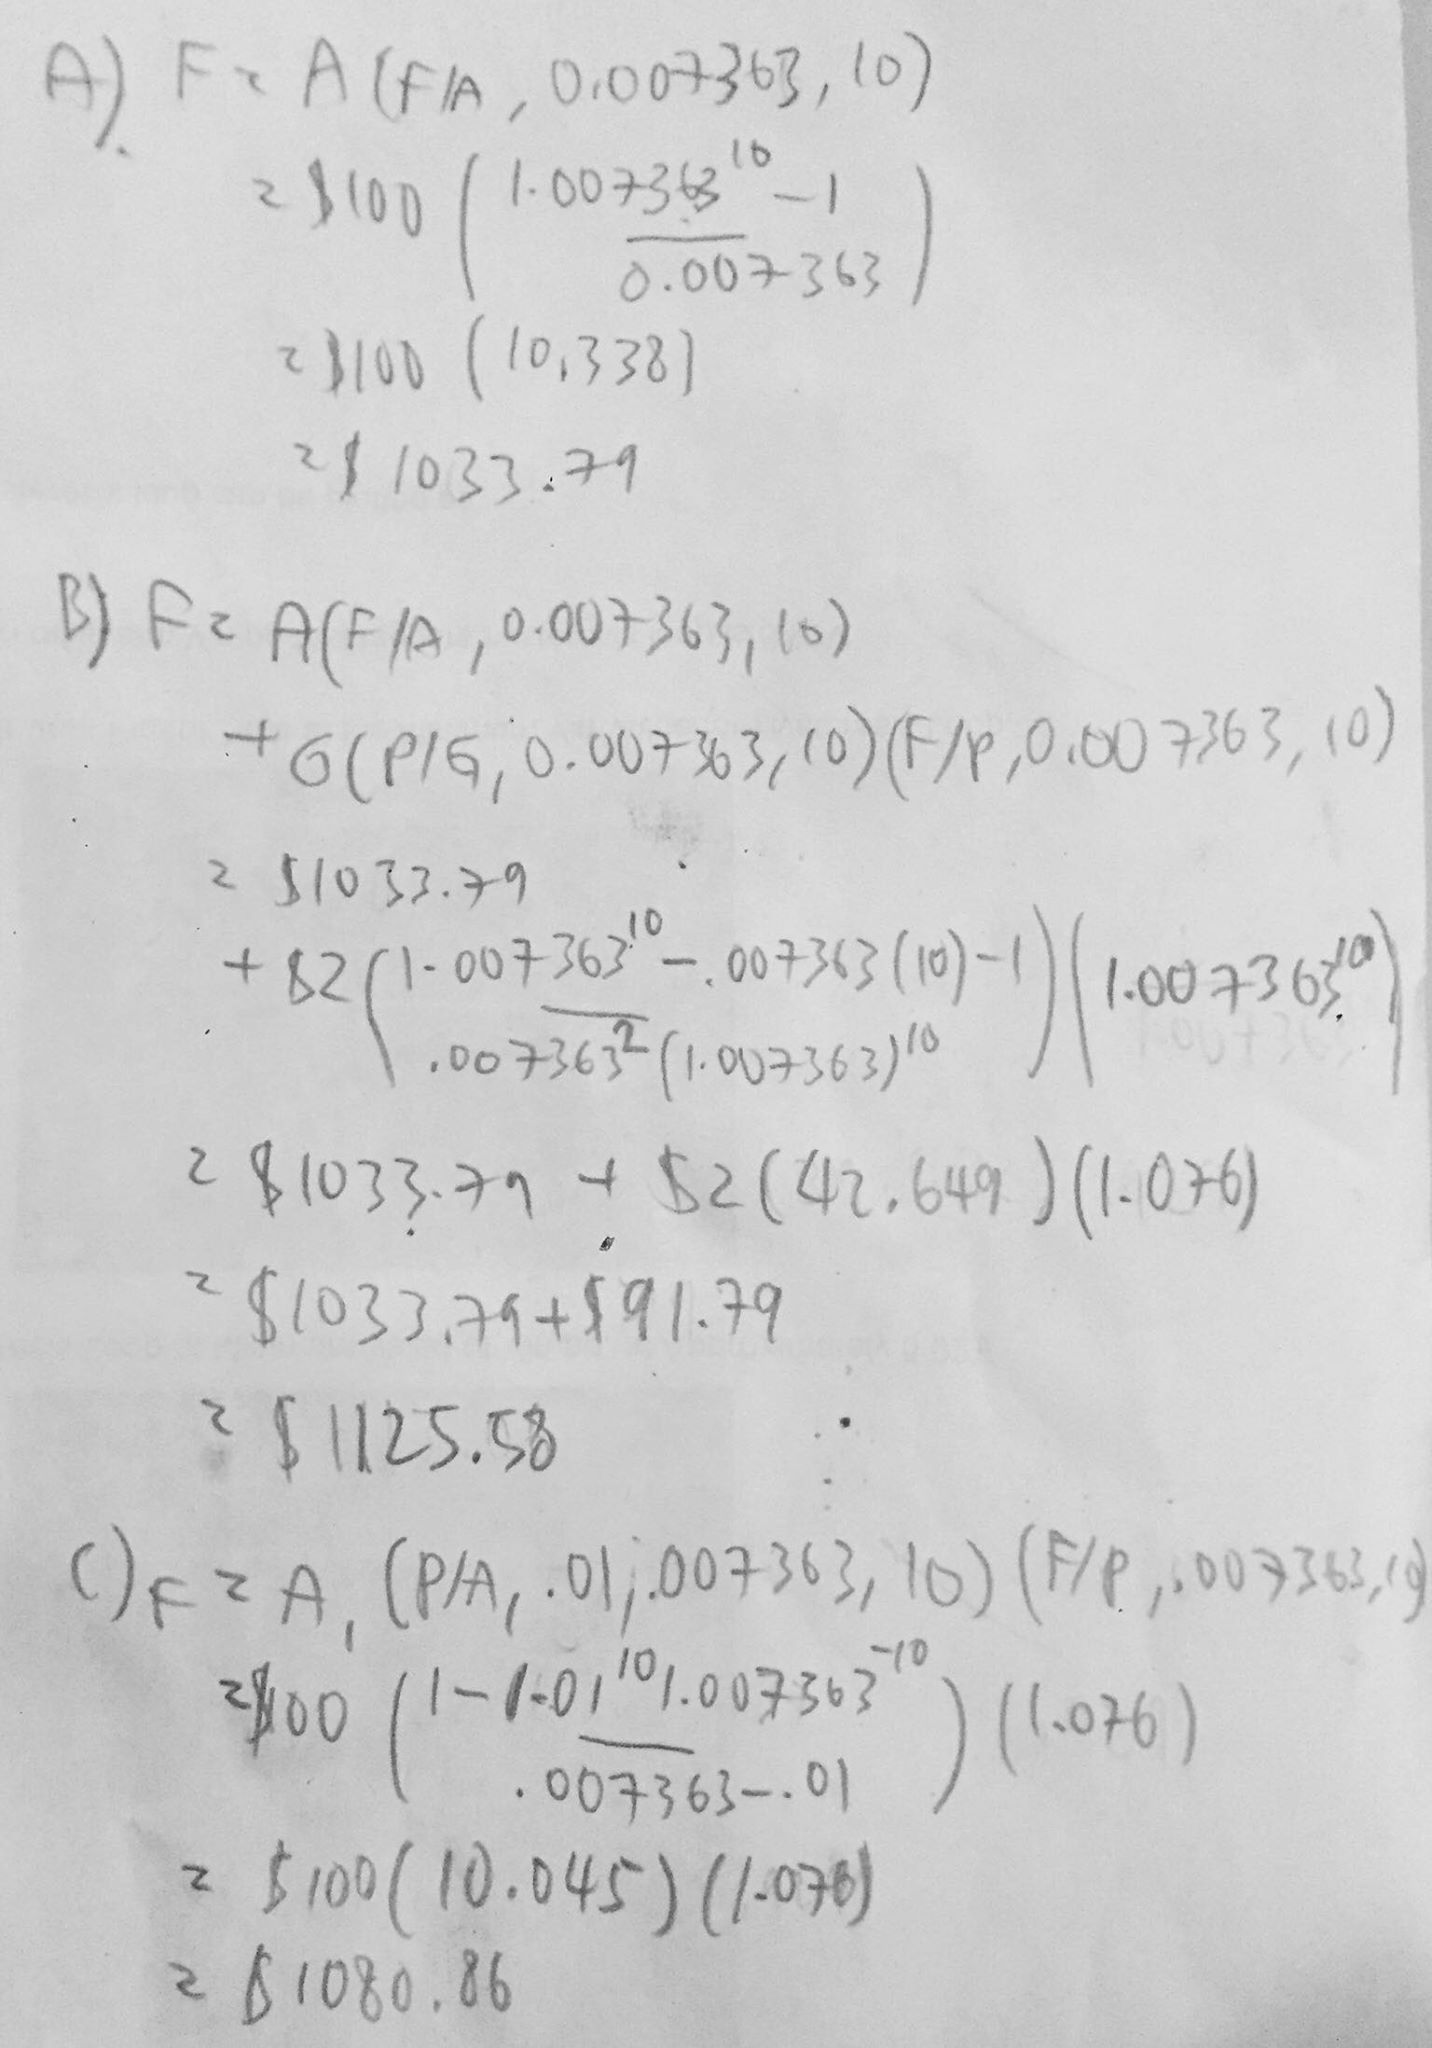 A) F = A (F/A, 0.007363, 10)
= $100 ( 1.007363^10 - 1
0.007363 )
= $100 (10.338)
= $1033.79
B) F = A(F/A, 0.007363, 10)
+ G(P/G, 0.007363, 10)(F/P, 0.007363, 10)
= $1033.79
+ $2 ( 1.007363^10 - .007363(10) - 1 ) ( 1.007363^10 )
.007363^2 (1.007363)^10
= $1033.79 + $2 (42.649) (1.076)
= $1033.79 + $91.79
= $1125.58
C) F = A1 (P/A, .01, .007363, 10) (F/P, .007363, 10)
= $100 ( 1 - 1.01^10 1.007363^-10 ) (1.076)
.007363 - .01
= $100 (10.045) (1.076)
= $1080.86